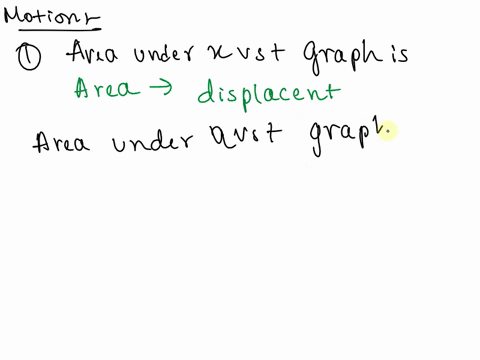 Motion
① Area under x vs t Graph is
Area → displacent
Area under a vs t graph